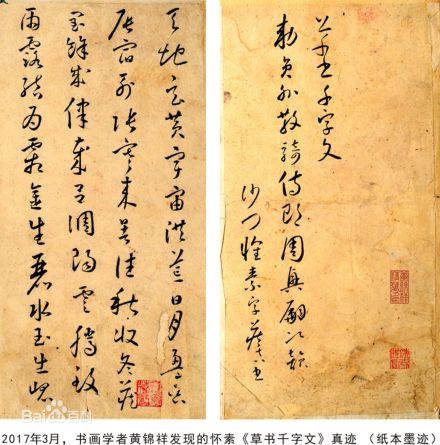 草书千字文
勅员外散骑侍郎周興嗣次韻
沙门懷素字藏真书
天地玄黄宇宙洪荒日月盈昃
辰宿列张寒来暑往秋收冬藏
闰餘成律歲吕调阳云腾致
雨露结为霜金生丽水玉生崐
Bai百科
2017年3月，书画学者黄锦祥发现的怀素《草书千字文》真迹 （纸本墨迹）